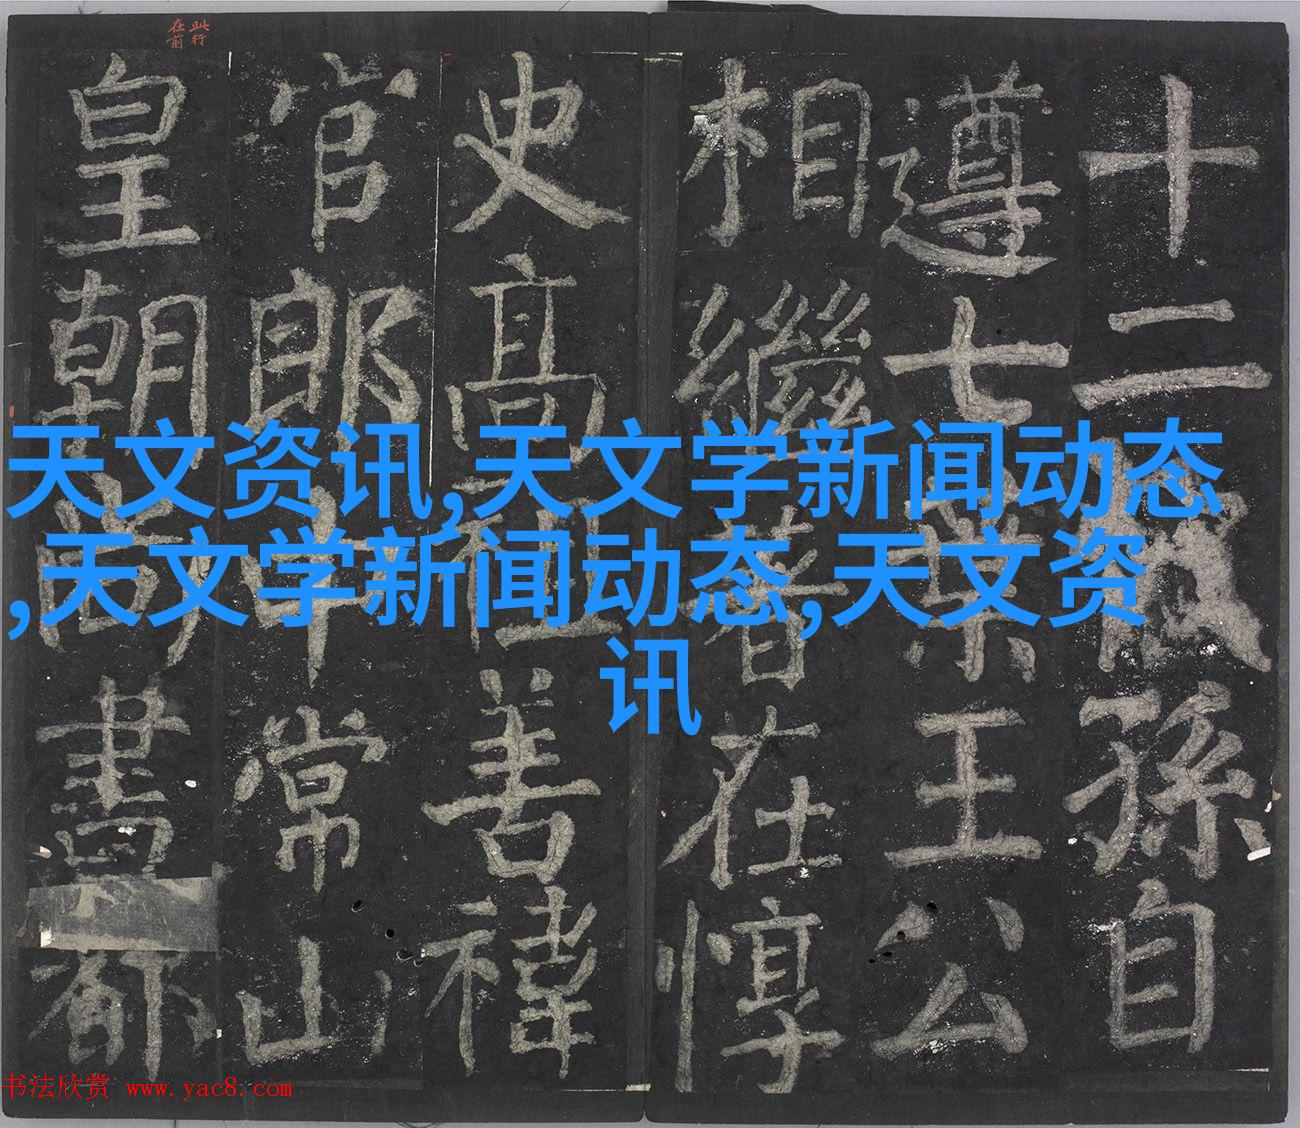 天文资讯,天文学新闻动态
,天文学新闻动态,天文资
讯
十二孫自
遵七葉王公
相繼著在惇
史高祖善禕
官郎中常山
皇朝尚書都
此行
在前
书法欣赏 www.yac8.com